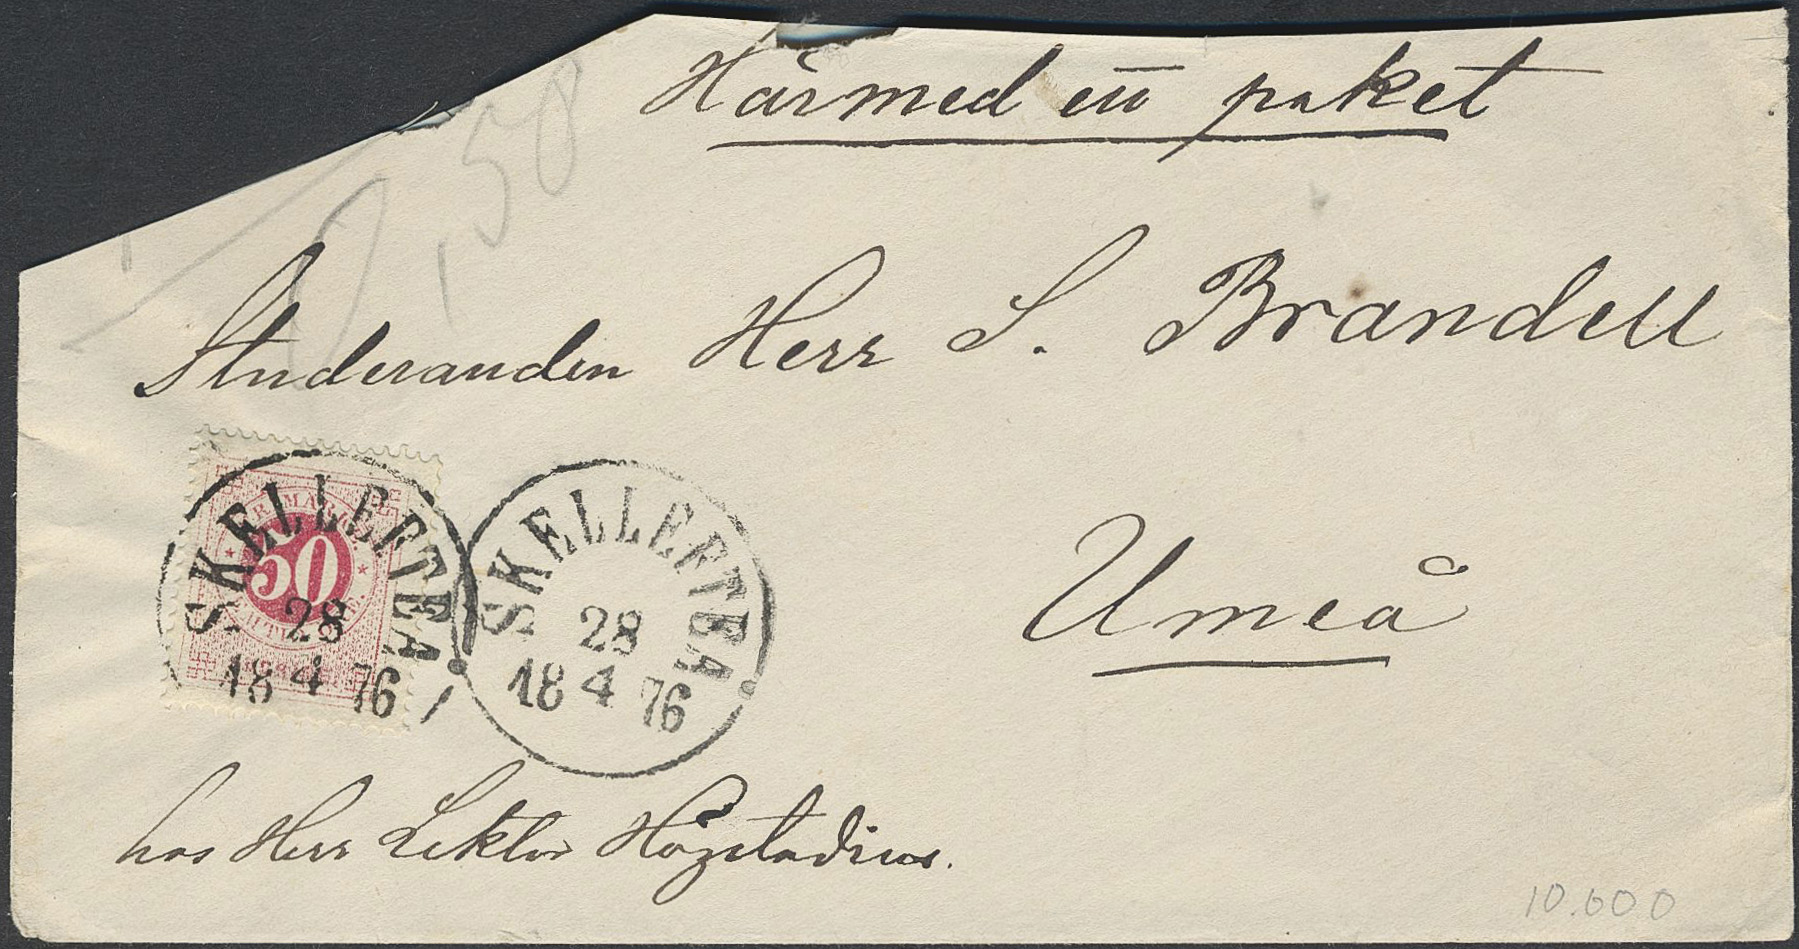 Härmed ett paket
0,58
Studeranden Herr S. Brandell
50
SKELLEFTEÅ
28
18 4 76
SKELLEFTEÅ
28
18 4 76
Umeå
hos Herr Lektor Högstadius.
10.600